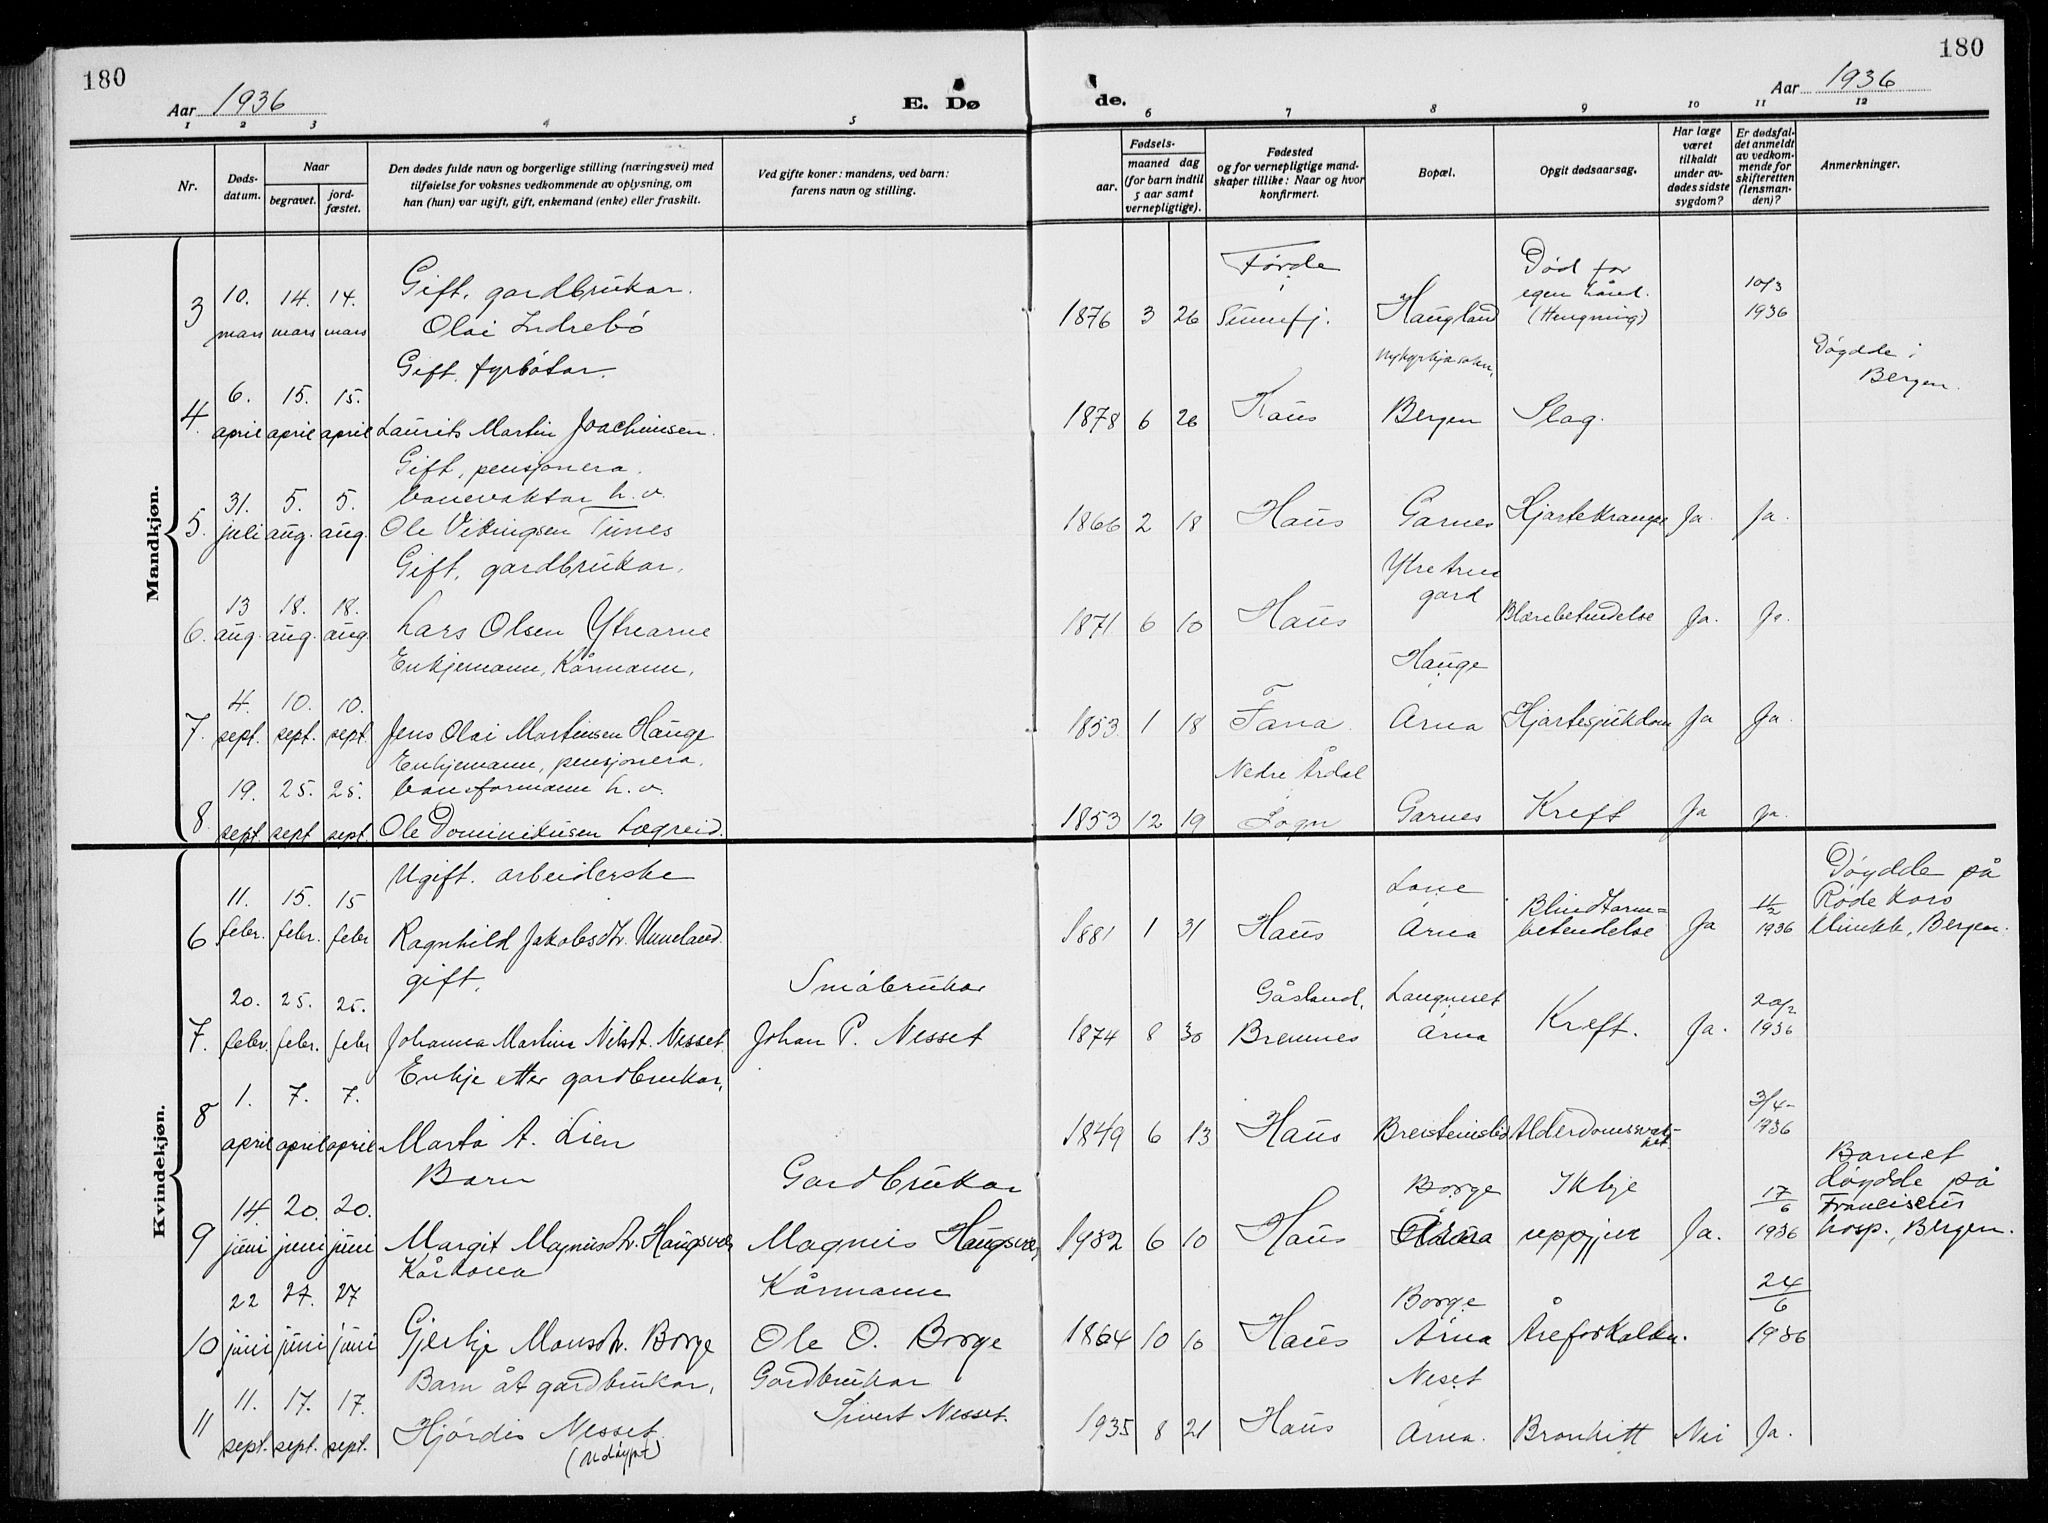 180
Aar 1936
E. Dø
de.
Aar 1936
180
1 2 3 4 5 6 7 8 9 10 11 12
Nr.
Døds-
datum.
Naar
begravet.
jord-
fæstet.
Den dødes fulde navn og borgerlige stilling (næringsvei) med
tilføielse for voksnes vedkommende av oplysning, om
han (hun) var ugift, gift, enkemand (enke) eller fraskilt.
Ved gifte koner: mandens, ved barn:
farens navn og stilling.
Fødsels-
aar.
maaned dag
(for barn indtil
5 aar samt
vernepligtige).
Fødested
og for vernepligtige mand-
skaper tillike: Naar og hvor
konfirmert.
Bopæl.
Opgit dødsaarsag.
Har læge
været
tilkaldt
under av-
dødes sidste
sygdom?
Er dødsfal-
det anmeldt
av vedkom-
mende for
skifteretten
(lensman-
den)?
Anmerkninger.
Mandkjøn.
3 10. mars 14. mars 14. mars
Gift, gardbrukar.
Olai Indrebö
1876 3 26
Førde
Sunnfj.
Haugland
Nykyrkjesokn.
Død for
egen hånd.
(Hengning)
10/3
1936
4. 6. april 15. april 15. april
Gift. fyrbøtar.
Laurits Martin Joachimsen.
1878 6 26 Haus Bergen Slag.
Døydde i
Bergen.
5. 31. juli 5. aug. 5. aug.
Gift, pensjonera.
banevaktar h. v.
Ole Vikingsen Tunes
1866 2 18 Haus Garnes Hjartekrampe Ja. Ja.
6. 13 aug. 18. aug. 18. aug.
Gift, gardbrukar.
Lars Olsen Ytrearne
1871 6 10 Haus
Ytre Arna
gard
Blærebetendelse Ja. Ja.
7. 4. sept. 10. sept. 10. sept.
Enkjemann, Kårmann.
Jens Olai Martinsen Hauge
1853 1 18 Fana.
Hauge
Arna
Hjartesjukdom Ja Ja.
8 19. sept. 25. sept 25. sept.
Enkjemann, pensjonera.
baneformann h. v.
Ole Dominikusen Lægreid.
1853 12 19
Nedre Årdal
Sogn
Garnes Kreft Ja Ja.
Kvindekjøn.
6 11. febr. 15. febr. 15 febr
Ugift. arbeiderske
Ragnhild Jakobsdtr. Unneland.
1881 1 31 Haus
Lone
Arna
Blindtarm=
betendelse
Ja
11/2
1936
Døydde på
Røde Kors
klinikk, Bergen.
7. 20. febr. 25. febr. 25. febr
gift.
Johanna Martine Nilsdt. Nesset.
Småbrukar
Johan P. Nesset
1874 8 30
Gåsland,
Bremnes
Langneset
Arna
Kreft. Ja.
20/2
1936
8 1. april 7. april 7. april
Enkje etter gardbrukar.
Marta A. Lien
1849 6 13 Haus Breisteinslid
Alderdomssvak-
het.
3/4-
1936
9 14. juni 20. juni 20. juni
Barn
Margit Magnusdtr. Haugsvær
Gardbrukar
Magnus Haugsvær
1932 6 10 Haus
Borge
Arna
Ikkje
uppgjeve
Ja.
17/6
1936
Barnet
døydde på
Franciscus
hosp., Bergen.
10 22 juni 27. juni 27 juni
Kårkona
Gjertje Monsdtr. Borge
Kårmann
Ole O. Borge
1864 10 10 Haus
Borge
Arna
Åreforkalkn.
24/6
1936
11 11. sept. 17. sept. 17. sept.
Barn åt gardbrukar,
Hjørdis Nesset.
(Udøypt)
Gardbrukar
Sivert Nesset.
1935 8 21 Haus
Neset
Arna.
Bronkitt Nei Ja.